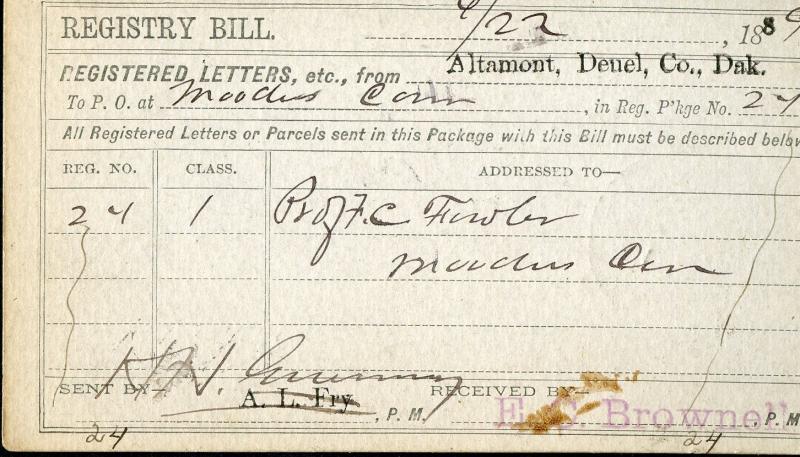 REGISTRY BILL.
/22, 1889
REGISTERED LETTERS, etc., from Altamont, Deuel, Co., Dak.
To P. O. at Moodus Conn, in Reg. P'kge No. 24
All Registered Letters or Parcels sent in this Package with this Bill must be described below
REG. NO. CLASS. ADDRESSED TO—
24 1 Prof F. C Fowler
Moodus Conn
SENT BY— RECEIVED BY—
A. L. Fry, P. M. E. C. Brownell, P. M
24 24